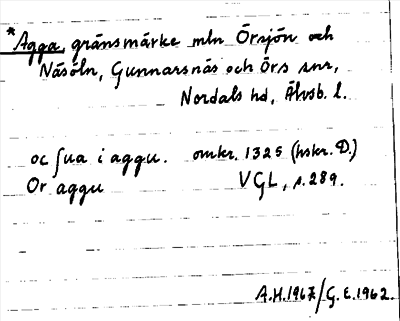 *Agga, gränsmärke mln Örsjön och
Näsöln, Gunnarsnäs och Örs snr,
Nordals hd, Älvsb. l.
oc ſua i aggu. omkr. 1325 (hskr. D.)
Or aggu VGL, s. 289.
A.H.1967/G.E.1962.